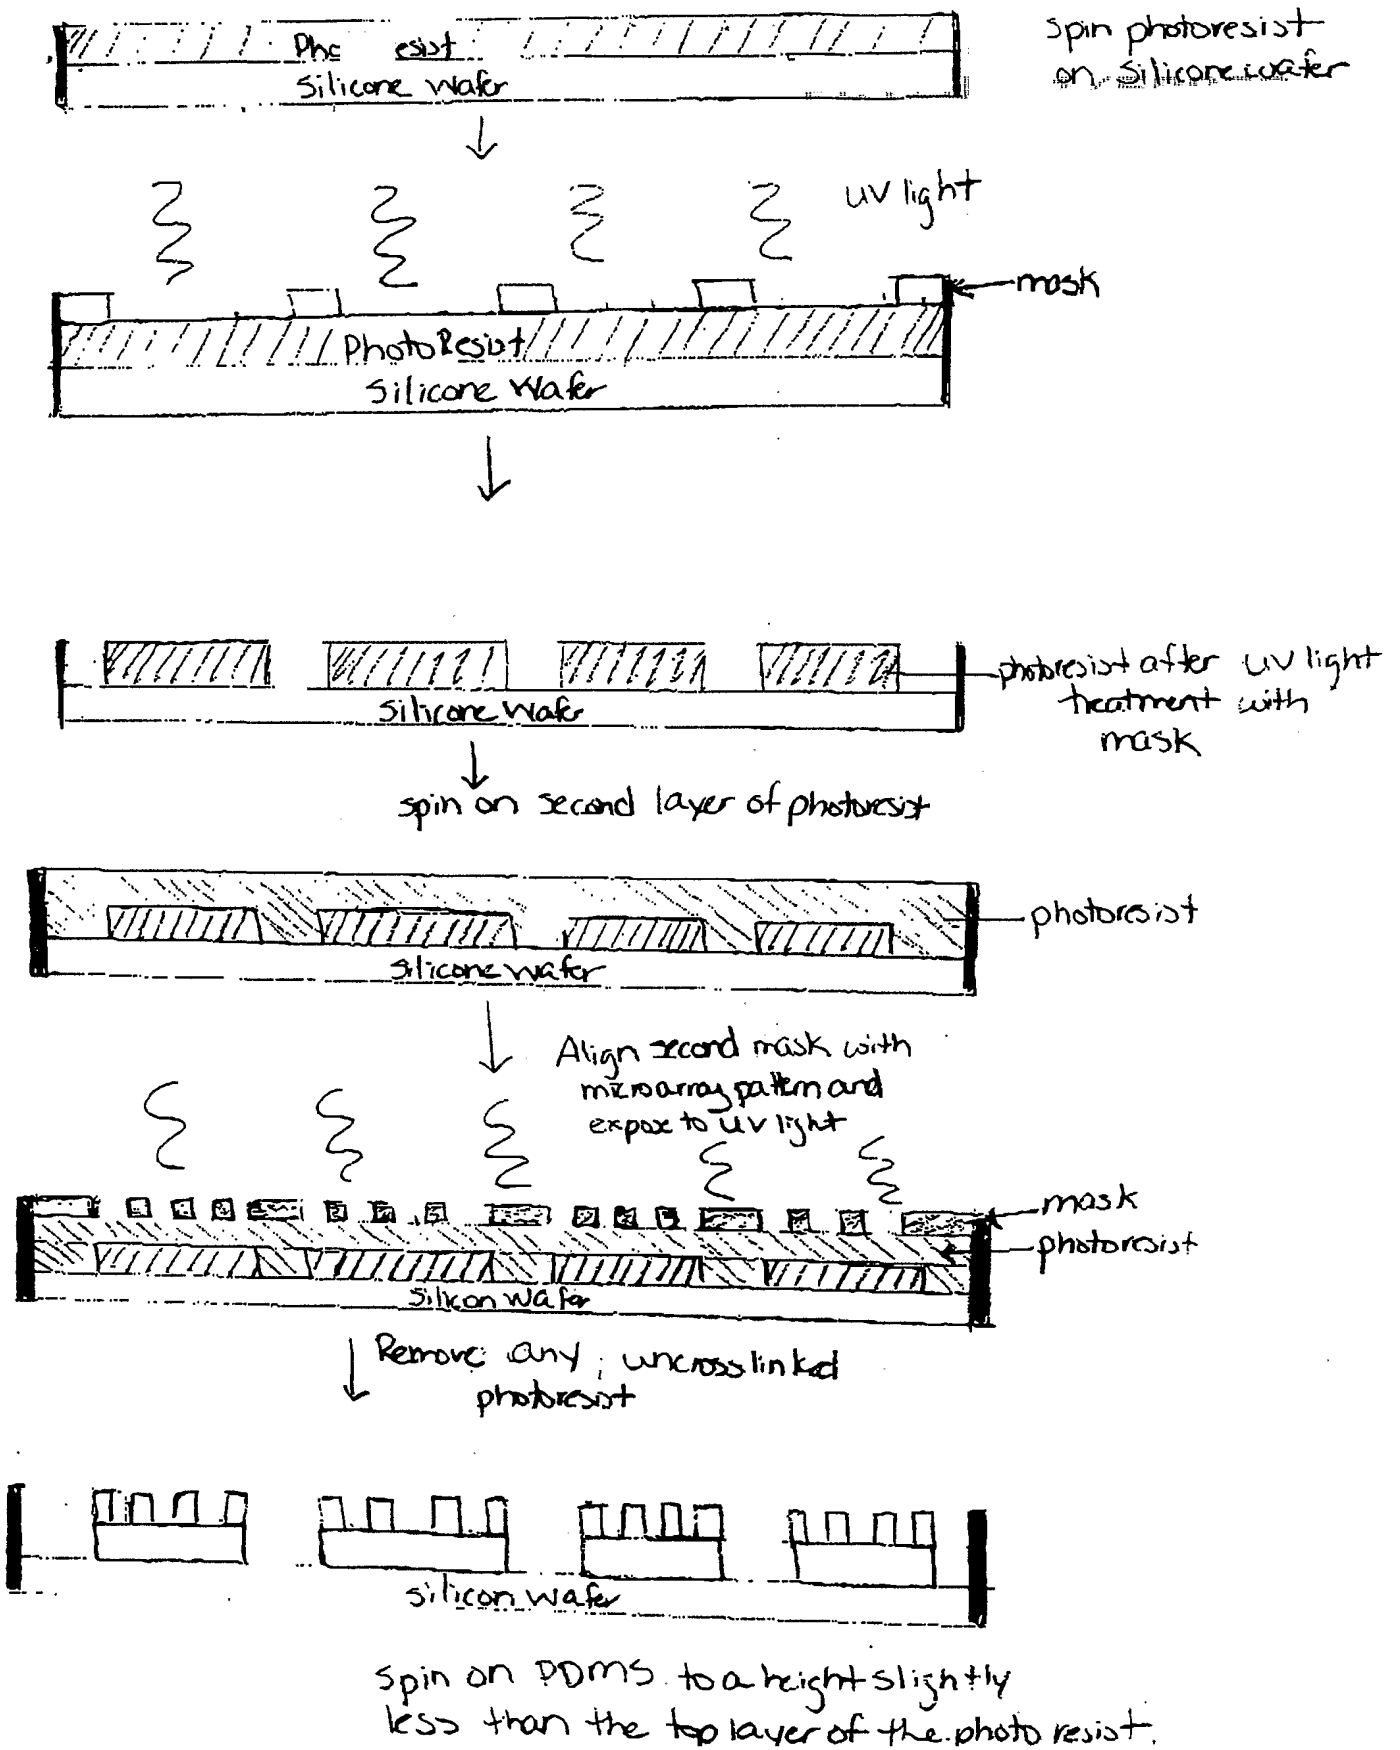 spin photoresist
on silicone wafer
Pho esist
Silicone Wafer
UV light
mask
PhotoResist
Silicone Wafer
photoresist after UV light
treatment with
mask
Silicone Wafer
spin on second layer of photoresist
photoresist
Silicone wafer
Align second mask with
microarray pattern and
expose to UV light
mask
photoresist
Silicon Wafer
Remove any uncrosslinked
photoresist
silicon wafer
spin on PDMS to a height slightly
less than the top layer of the photo resist.